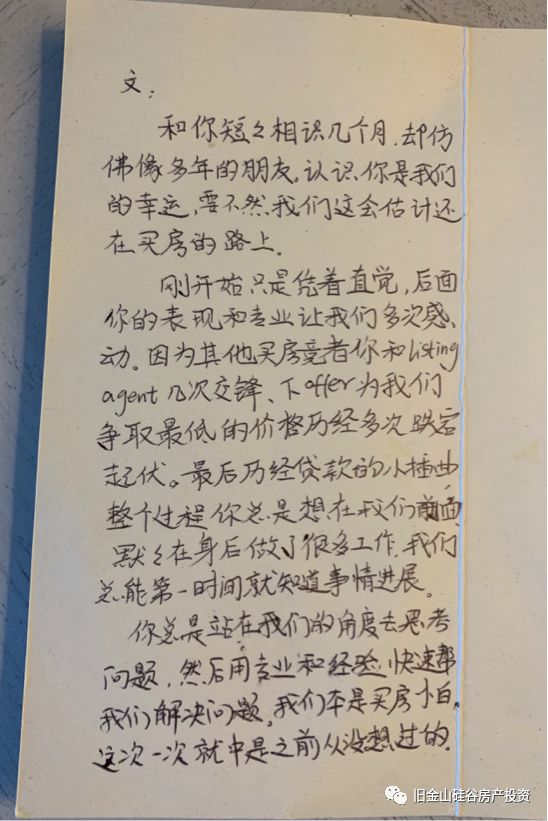 文：
和你短々相识几个月，却仿
佛像多年的朋友。认识你是我们
的幸运，要不然我们这会估计还
在买房的路上。
刚开始只是凭着直觉，后面
你的表现和专业让我们多次感
动。因为其他买房竞者你和listing
agent几次交锋、下offer为我们
争取最低的价格历经多次跌宕
起伏。最后历经贷款的小插曲
整个过程你总是想在我们前面
默々在身后做了很多工作，我们
总能第一时间就知道事情进展。
你总是站在我们的角度去思考
问题，然后用专业和经验，快速帮
我们解决问题。我们本是买房小白，
这次一次就中是之前从没想过的.
旧金山硅谷房产投资